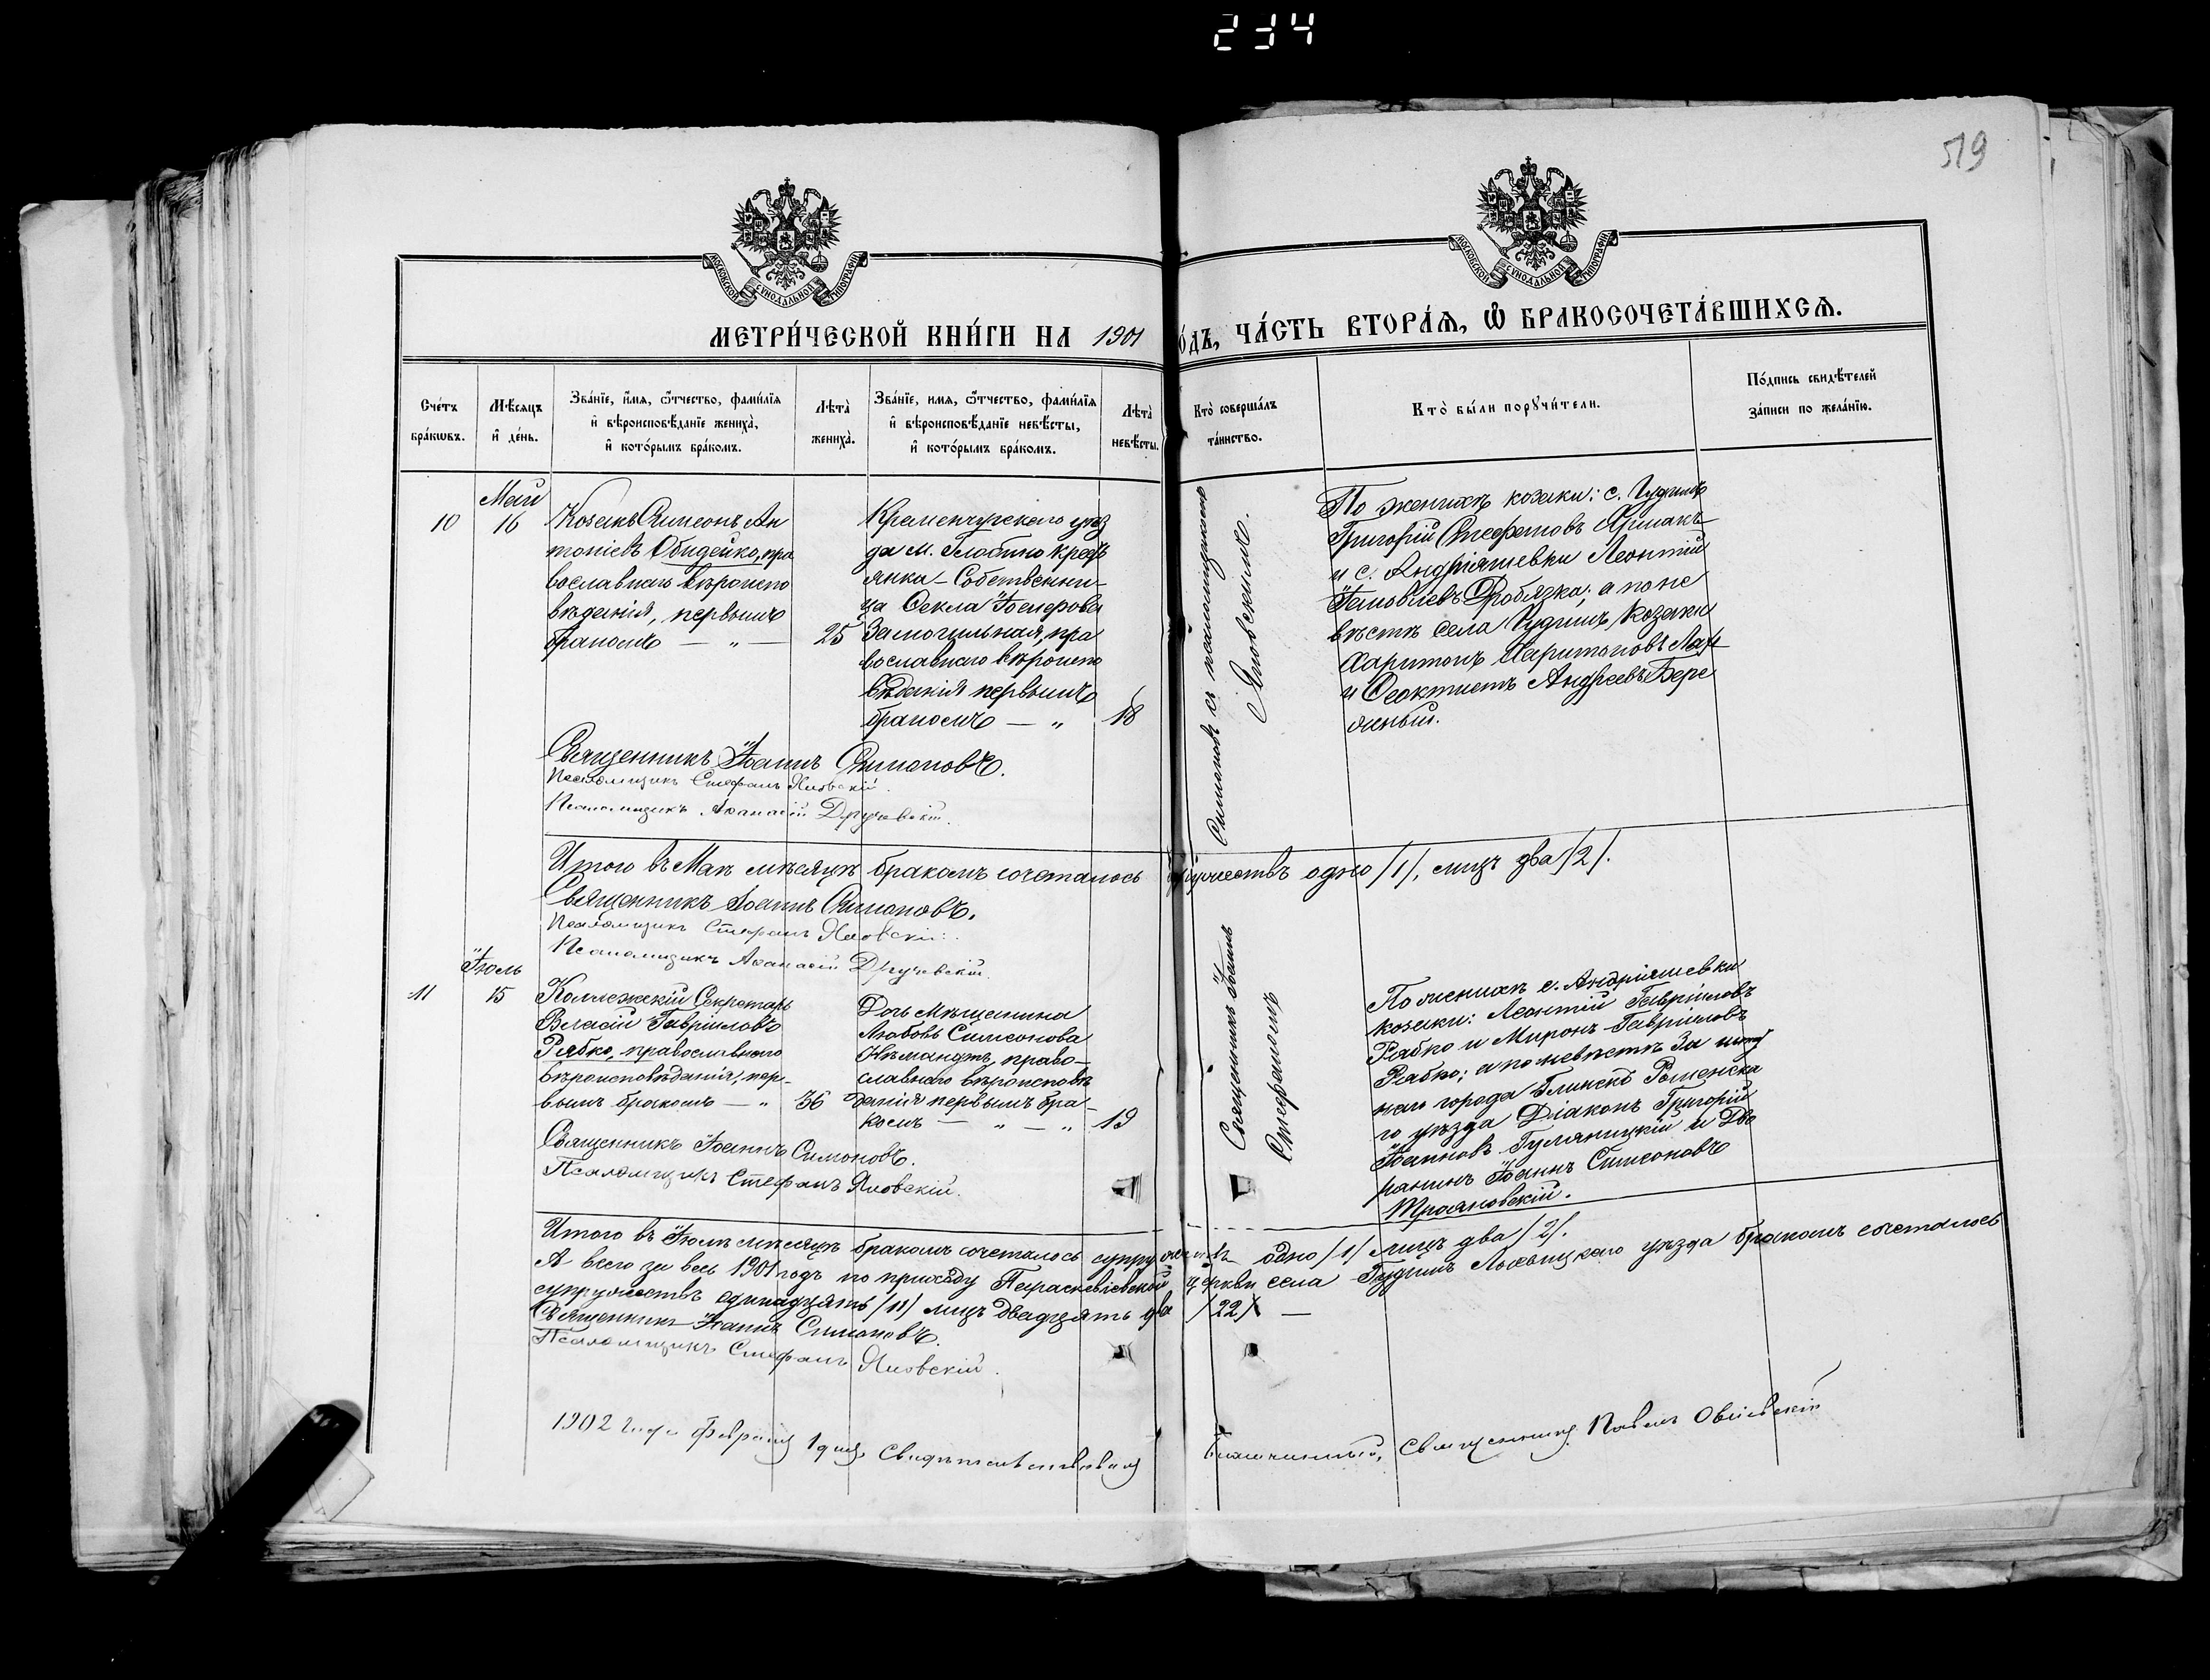 234
519
МОСКОВСКОЙ СУНОДАЛЬНОЙ ТИПОГРАФІИ
МОСКОВСКОЙ СУНОДАЛЬНОЙ ТИПОГРАФІИ
МЕТРИ́ЧЕСКОЙ КНИ́ГИ НА 1901
О́ДЪ, ЧА́СТЬ ВТОРА́Ѧ, Ѽ БРАКОСОЧЕТА́ВШИХСѦ.
Сче́тъ бра́кѡвъ.
Мѣ́сяцъ и҆ де́нь.
Зва́нїе, и҆́мя, ѻ҆́тчество, фами́лїя
и҆ вѣроисповѣ́данїе жениха̀,
и҆ кото́рымъ бра́комъ.
Лѣта̀ жениха̀.
Зва́нїе, имя, ѻ҆́тчество, фами́лїя
и҆ вѣроисповѣ́данїе невѣ́сты,
и҆ кото́рымъ бра́комъ.
Лѣта̀ невѣ́сты.
Кто̀ соверша́лъ та́инство.
Кто̀ бы́ли порꙋчи́тели.
По́дпись свидѣ́телей
за́писи по жела́нїю.
Май
10
16
Козакъ Симеонъ Ан
тоніевъ Обидейко, пра
вославнаго вѣроиспо
вѣданія, первымъ
бракомъ — „ —
25
Кременчугскаго уѣз
да м. Глобино крест
янка - Собственни-
ца Ѳекла Іосифова
Замогильная, пра
вославнаго вѣроиспо
вѣданія первымъ
бракомъ — „
18
Симоновъ съ псаломщикомъ
Яновскимъ.
По женихѣ козаки: с. Гудимъ
Григорій Стефановъ
и с. Андріяшевки Леонтій
Іаковлевъ Дробязка; а по не
вѣстѣ села Гудимъ, Козаки
Харитонъ Харитоновъ
и Ѳеоктистъ Андреевъ Бере
жный.
Священникъ Іоаннъ Симоновъ.
Псаломщикъ Стефанъ Яновскій.
Псаломщикъ Аѳанасій
Итого въ Маѣ мѣсяцѣ бракомъ сочеталось супружествъ одно /1/, лицъ два /2/.
Священникъ Іоаннъ Симоновъ.
Псаломщикъ Стефанъ Яновскій.
Псаломщикъ Аѳанасій
Іюль
11
15
Коллежскій Секретарь
Власій Гавріиловъ
Рябко, православнаго
вѣроисповѣданія, пер-
вымъ бракомъ — „
36
Дочь Мѣщанина
Любовь Симеонова
право-
славнаго вѣроисповѣ
данія первымъ бра-
комъ — „ — „
19
Священникъ Іоаннъ
Стефаномъ
По женихѣ с. Андріяшевки
козаки: Леонтій Гавріиловъ
Рябко и Миронъ Гавріиловъ
Рябко; а по невѣстѣ За штат
наго города Глинскъ Роменска
го уѣзда Діаконъ Григорій
Іоанновъ Гуляницкій и Дво
рянинъ Іоаннъ Симеоновъ
Трояновскій.
Священникъ Іоаннъ Симоновъ.
Псаломщикъ Стефанъ Яновскій.
Итого въ Іюлѣ мѣсяцѣ бракомъ сочеталось супружествъ одно /1/ лицъ два /2/.
А всего за весь 1901 годъ по приходу Параскевіевской церкви села Гудимъ Лохвицкаго уѣзда бракомъ сочеталось
супружествъ одинадцать /11/ лицъ двадцать два /22/ —
Священникъ Іоаннъ Симоновъ.
Псаломщикъ Стефанъ Яновскій.
1902 года Февраля 1 дня Свидѣтельствовалъ Благочинный, Священникъ Павелъ